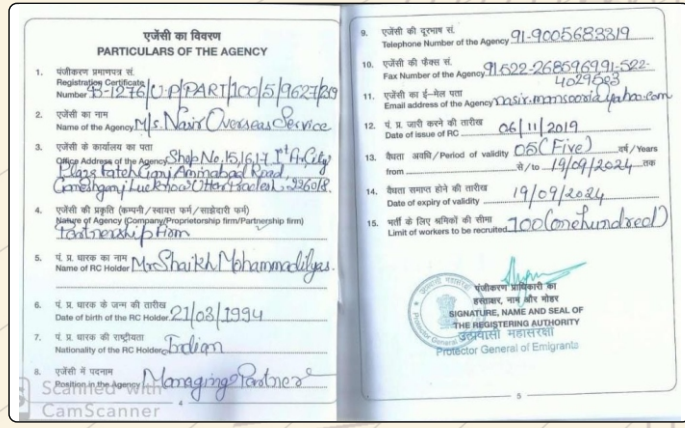 एजेंसी का विवरण
PARTICULARS OF THE AGENCY
1. पंजीकरण प्रमाणपत्र सं.
Registration Certificate
Number B-1276/U.P/PART/100/5/9627/2019
2. एजेंसी का नाम
Name of the Agency M/s. Nasir Overseas Service
3. एजेंसी के कार्यालय का पता
Office Address of the Agency Shop No, 15,16,17 Ist Flr, City
Plaza Fateh Ganj Aminabad Road,
Ganeshganj Lucknow Uttar Pradesh, 226018.
4. एजेंसी की प्रकृति (कम्पनी/स्वायत्त फर्म/साझेदारी फर्म)
Nature of Agency (Company/Proprietorship firm/Partnership firm)
Partnership Firm
5. पं. प्र. धारक का नाम
Name of RC Holder Mr Shaikh Mohammad Ilyas.
6. पं. प्र. धारक के जन्म की तारीख
Date of birth of the RC Holder 21/03/1994
7. पं. प्र. धारक की राष्ट्रीयता
Nationality of the RC Holder Indian
8. एजेंसी में पदनाम
Position in the Agency Managing Partner
4
Scanned with
CamScanner
9. एजेंसी की दूरभाष सं.
Telephone Number of the Agency 91-9005683819
10. एजेंसी की फैक्स सं.
Fax Number of the Agency 91522-2685969, 91-522-
11. एजेंसी का ई-मेल पता
Email address of the Agency
12. पं. प्र. जारी करने की तारीख
Date of issue of RC 06/11/2019
13. वैधता अवधि/Period of validity 05 (Five) वर्ष/Years
from से/to 19/09/2024 तक
14. वैधता समाप्त होने की तारीख
Date of expiry of validity 19/09/2024
15. भर्ती के लिए श्रमिकों की सीमा
Limit of workers to be recruited 100 (One hundred)
पंजीकरण प्राधिकारी का
हस्ताक्षर, नाम और मोहर
SIGNATURE, NAME AND SEAL OF
THE REGISTERING AUTHORITY
उत्प्रवासी महासंरक्षी
Protector General of Emigrants
5